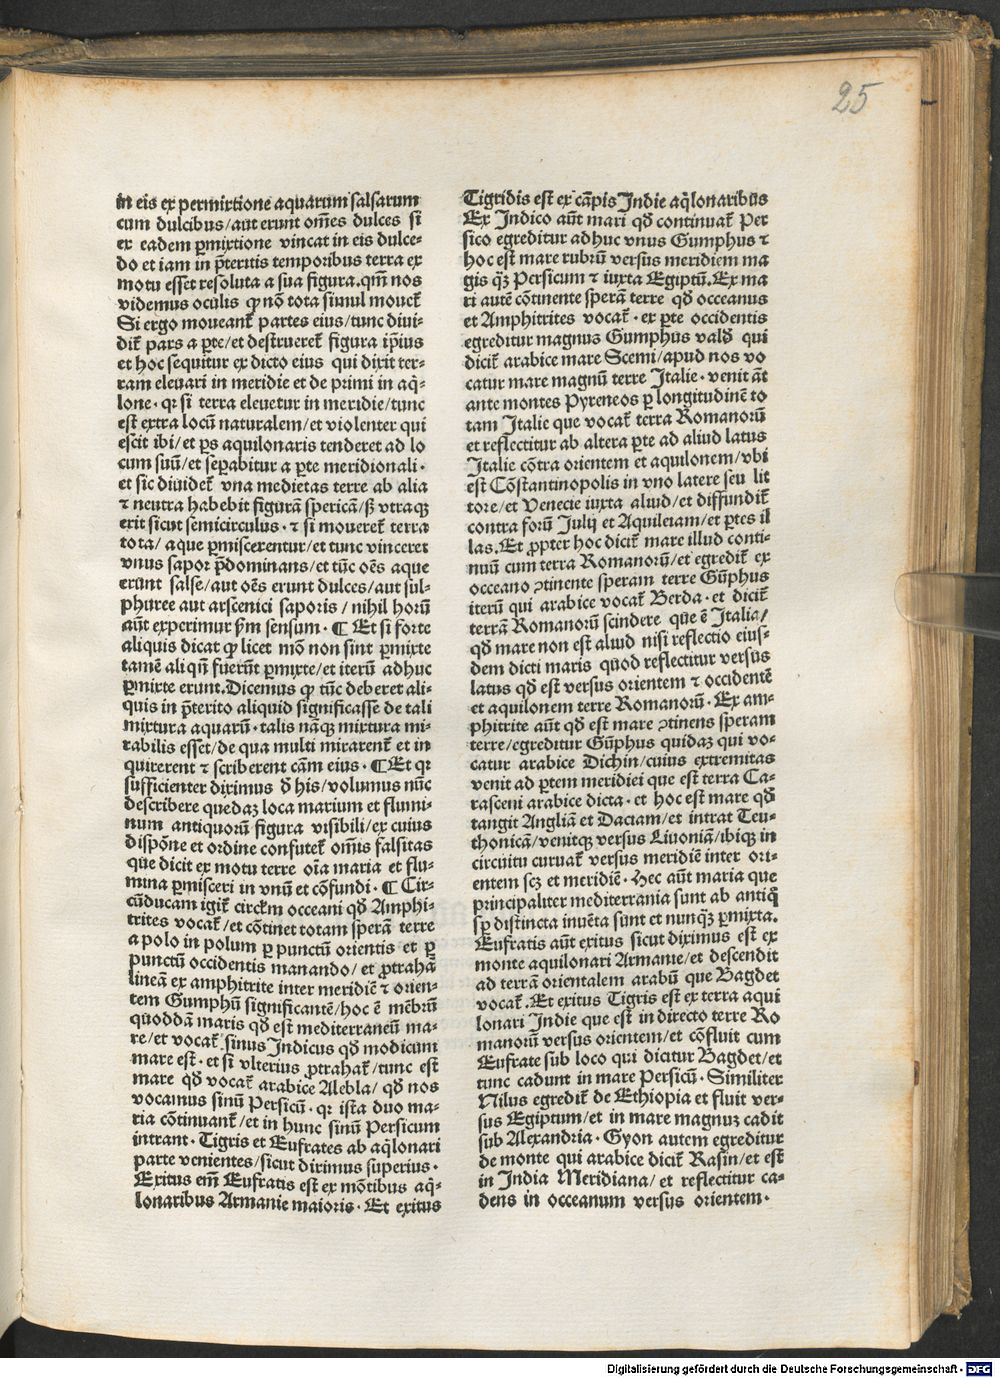 25
in eis ex permixtione aquarum salsarum
cum dulcibus/aut erunt om̄es dulces si
ex eadem ꝑmixtione vincat in eis dulce-
do et iam in p̄teritis temporibus terra ex
motu esset resoluta a sua figura.qm̄ nos
videmus oculis ꝙ nō tota simul mouet̄
Si ergo moueant̄ partes eius/tunc diui-
dit̄ pars a ꝑte/et destrueret̄ figura ip̄ius
et hoc sequitur ex dicto eius qui dixit ter-
ram eleuari in meridie et de primi in aq̄-
lone· qꝛ si terra eleuetur in meridie/tunc
est extra locū naturalem/et violenter qui
escit ibi/et ꝑs aquilonaris tenderet ad lo
cum suū/et seꝑabitur a ꝑte meridionali·
et sic diuidet̄ vna medietas terre ab alia
⁊ neutra habebit figurā spericā/ꞩ vtraqꝫ
erit sicut semicirculus· ⁊ si moueret̄ terra
tota/ aque ꝑmiscerentur/et tunc vinceret
vnus sapor p̄dominans/et tūc oēs aque
erunt salse/aut oēs erunt dulces/aut sul-
phuree aut arsenici saporis/ nihil horū
aūt experimur ẜm sensum· ¶ Et si forte
aliquis dicat ꝙ licet mō non sint ꝑmixte
tamē aliqn̄ fuerūt ꝑmixte/et iterū adhuc
ꝑmixte erunt.Dicemus ꝙ tūc deberet ali-
quis in p̄terito aliquid significasse de tali
mixtura aquarū· talis nāqꝫ mixtura mi-
rabilis esset/de qua multi mirarent̄ et in
quirerent ⁊ scriberent cām eius· ¶Et qꝛ
sufficienter diximus ð his/volumus nūc
describere quedaꝫ loca marium et flumi-
num antiquorū figura visibili/ex cuius
dispōne et ordine confutet̄ om̄is falsitas
que dicit ex motu terre oīa maria et flu-
mina ꝑmisceri in vnū et cōfundi· ¶ Cir-
cūducam igit̄ circl̄m occeani qð Amphi-
trites vocat̄/et cōtinet totam sperā terre
a polo in polum ꝑ punctū orientis et ꝑ
punctū occidentis manando/ et ꝓtrahā
lineā ex amphitrite inter meridiē ⁊ orien-
tem Gumphū significantē/hoc ē mēbrū
quoddā maris qð est mediterraneū ma-
re/et vocat̄ sinus Indicus qð modicum
mare est· et si vlterius ꝓtrahat̄/tunc est
mare qð vocat̄ arabice Alebla/ qð nos
vocamus sinū Persicū· qꝛ ista duo ma-
ria cōtinuant̄/et in hunc sinū Persicum
intrant· Tigris et Eufrates ab aq̄lonari
parte venientes/sicut diximus superius·
Exitus em̄ Eufratis est ex mōtibus aq̄-
lonaribus Armanie maioris· Et exitus
Tigridis est ex cāpis Indie aq̄lonaribus
Ex Indico aūt mari qð continuat̄ Per
sico egreditur adhuc vnus Gumphus ⁊
hoc est mare rubrū versus meridiem ma
gis q̄ꝫ Persicum ⁊ iuxta Egiptū.Ex ma
ri autē cōtinente sperā terre qð occeanus
et Amphitrites vocat̄· ex ꝑte occidentis
egreditur magnus Gumphus valð qui
dicit̄ arabice mare Scemi/apud nos vo
catur mare magnū terre Italie· venit āt
ante montes Pyreneos ꝑ longitudinē to
tam Italie que vocat̄ terra Romanorū
et reflectitur ab altera ꝑte ad aliud latus
Italie cōtra orientem et aquilonem/vbi
est Cōstantinopolis in vno latere seu lit
tore/et Venecie iuxta aliud/et diffundit̄
contra forū Julij et Aquileiam/et ꝑtes il
las.Et ꝓpter hoc dicit̄ mare illud conti-
nuū cum terra Romanorū/et egredit̄ ex
occeano ꝯtinente speram terre Gūphus
iterū qui arabice vocat̄ Berda· et dicit̄
terrā Romanorū scindere que ē Italia/
qð mare non est aliud nisi reflectio eius-
dem dicti maris quod reflectitur versus
latus qð est versus orientem ⁊ occidentē
et aquilonem terre Romanorū· Ex am-
phitrite aūt qð est mare ꝯtinens speram
terre/egreditur Gūphus quidaꝫ qui vo-
catur arabice Dichin/cuius extremitas
venit ad ꝑtem meridiei que est terra Ca-
rasceni arabice dicta· et hoc est mare qð
tangit Angliā et Daciam/et intrat Teu-
thonicā/venitqꝫ versus Liuoniā/ibiqꝫ in
circuitu curuat̄ versus meridiē inter ori-
entem scꝫ et meridiē· Hec aūt maria que
principaliter mediterrania sunt ab antiq̊
sꝑ distincta inuēta sunt et nunq̄ꝫ ꝑmixta.
Eufratis aūt exitus sicut diximus est ex
monte aquilonari Armanie/et descendit
ad terrā orientalem arabū que Bagdet
vocat̄.Et exitus Tigris est ex terra aqui
lonari Indie que est in directo terre Ro
manorū versus orientem/et cōfluit cum
Eufrate sub loco qui dicitur Bagdet/et
tunc cadunt in mare Persicū· Similiter
Nilus egredit̄ de Ethiopia et fluit ver-
sus Egiptum/et in mare magnuꝫ cadit
sub Alexandria· Gyon autem egreditur
de monte qui arabice dicit̄ Rasin/et est
in India Meridiana/ et reflectitur ca-
dens in occeanum versus orientem·
Digitalisierung gefördert durch die Deutsche Forschungsgemeinschaft - DFG